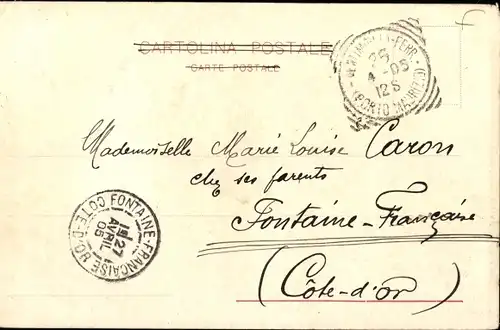 CARTOLINA POSTALE
CARTE POSTALE
VENTIMIGLIA-FERR.
25
4-05
12 S
(PORTO MAURIZIO)
Mademoiselle Marie Louise Caron
chez ses parents
Fontaine-Française
(Côte-d'or)
FONTAINE-FRANÇAISE
27
AVRIL
05
COTE-D'OR